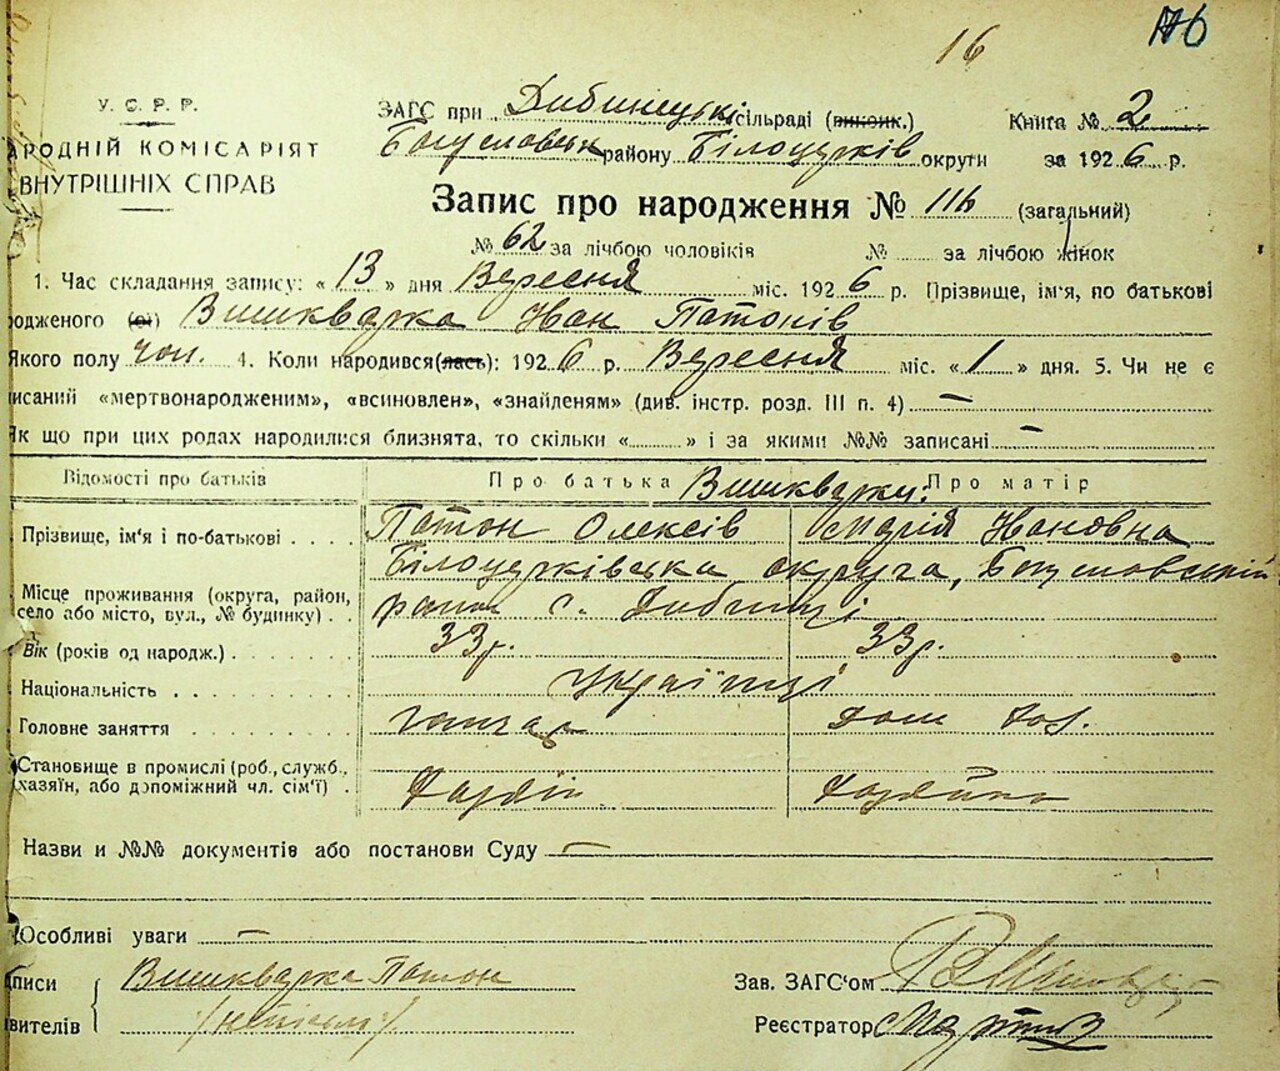 16
У. С. Р. Р.
АРОДНІЙ КОМІСАРІЯТ
ВНУТРІШНІХ СПРАВ
ЗАГС при Дибинецькі сільраді (виконк.) Книга № 2
Богуславськ району Білоцерків округи за 1926 р.
Запис про народження № 116 (загальний)
№ 62 за лічбою чоловіків № за лічбою жінок
1. Час складання запису: « 13 » дня Вересня міс. 1926 р. Прізвище, ім'я, по батькові
одженого (ої) Вишкварка Іван Патонів
Якого полу чол. 4. Коли народився(лась): 1926 р. Вересня міс. « 1 » дня. 5. Чи не є
исаний «мертвонародженим», «всиновлен», «знайденям» (див. інстр. розд. III п. 4) —
Як що при цих родах народилися близнята, то скільки « » і за якими №№ записані —
Відомості про батьків Про батька Вишкварки: Про матір
Прізвище, ім'я і по-батькові . . . . Патон Олексів Марія Івановна
Білоцерківська округа, Богуславський
Місце проживання (округа, район,
село або місто, вул., № будинку) . . район с. Дибинці
Вік (років од народж.) . . . . . . . 33р. 33р.
Національність . . . . . . . . . . Українці
Головне заняття . . . . . . . . . гончар дом
Становище в промислі (роб., служб.,
хазяїн, або допоміжний чл. сім'ї) . Хазяїн Хазяйка
Назви и №№ документів або постанови Суду —
Особливі уваги —
дписи Вишкварка Патон Зав. ЗАГС'ом
явителів /неписьм/ Реєстратор